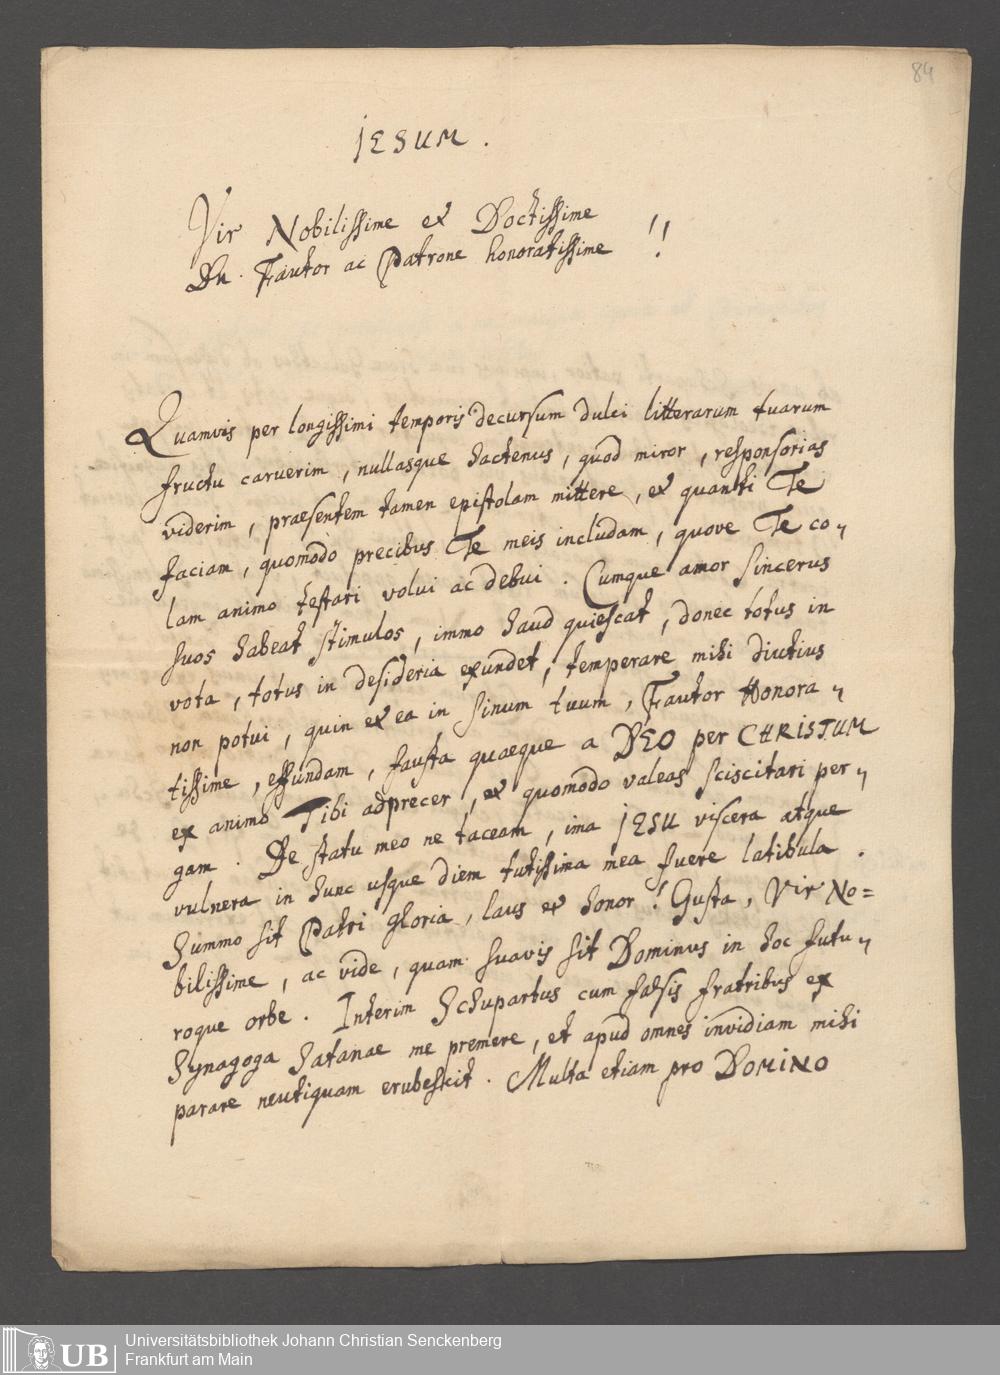 84
JESUM.
Vir Nobilissime et Doctissime
Dn. Fautor ac Patrone honoratissime !!
Quamvis per longissimi temporis decursum dulci litterarum tuarum
fructu caruerim, nullasque hactenus, quod miror, responsorias
viderim, praesentem tamen epistolam mittere, et quanti Te
faciam, quomodo precibus Te meis includam, quove Te co„
lam animo testari volui ac debui. Cumque amor sincerus
suos habeat stimulos, immo haud quiescat, donec totus in
vota, totus in desideria exundet, temperare mihi diutius
non potui, quin et ea in sinum tuum, Fautor Honora„
tissime, effundam, fausta quaeque a DEO per CHRISTUM
ex animo Tibi adprecer, et quomodo valeas sciscitari per„
gam. De statu meo ne taceam, ima JESU viscera atque
vulnera in hunc usque diem tutissima mea fuere latibula.
Summo sit Patri gloria, laus et honor! Gusta, Vir No=
bilissime, ac vide, quam suavis sit Dominus in hoc futu„
roque orbe. Interim Schupartus cum falsis fratribus ex
Synagoga Satanae me premere, et apud omnes invidiam mihi
parare neutiquam erubescit. Multa etiam pro DOMINO
UB
Universitätsbibliothek Johann Christian Senckenberg
Frankfurt am Main